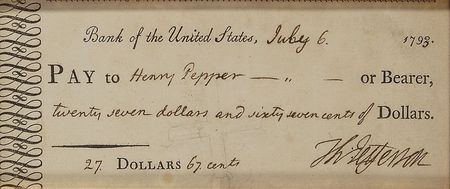 Bank of the United States, July 6. 1793.
PAY to Henry Pepper — „ — or Bearer,
twenty seven dollars and sixty seven cents of Dollars.
27. DOLLARS 67. cents Th. Jefferson